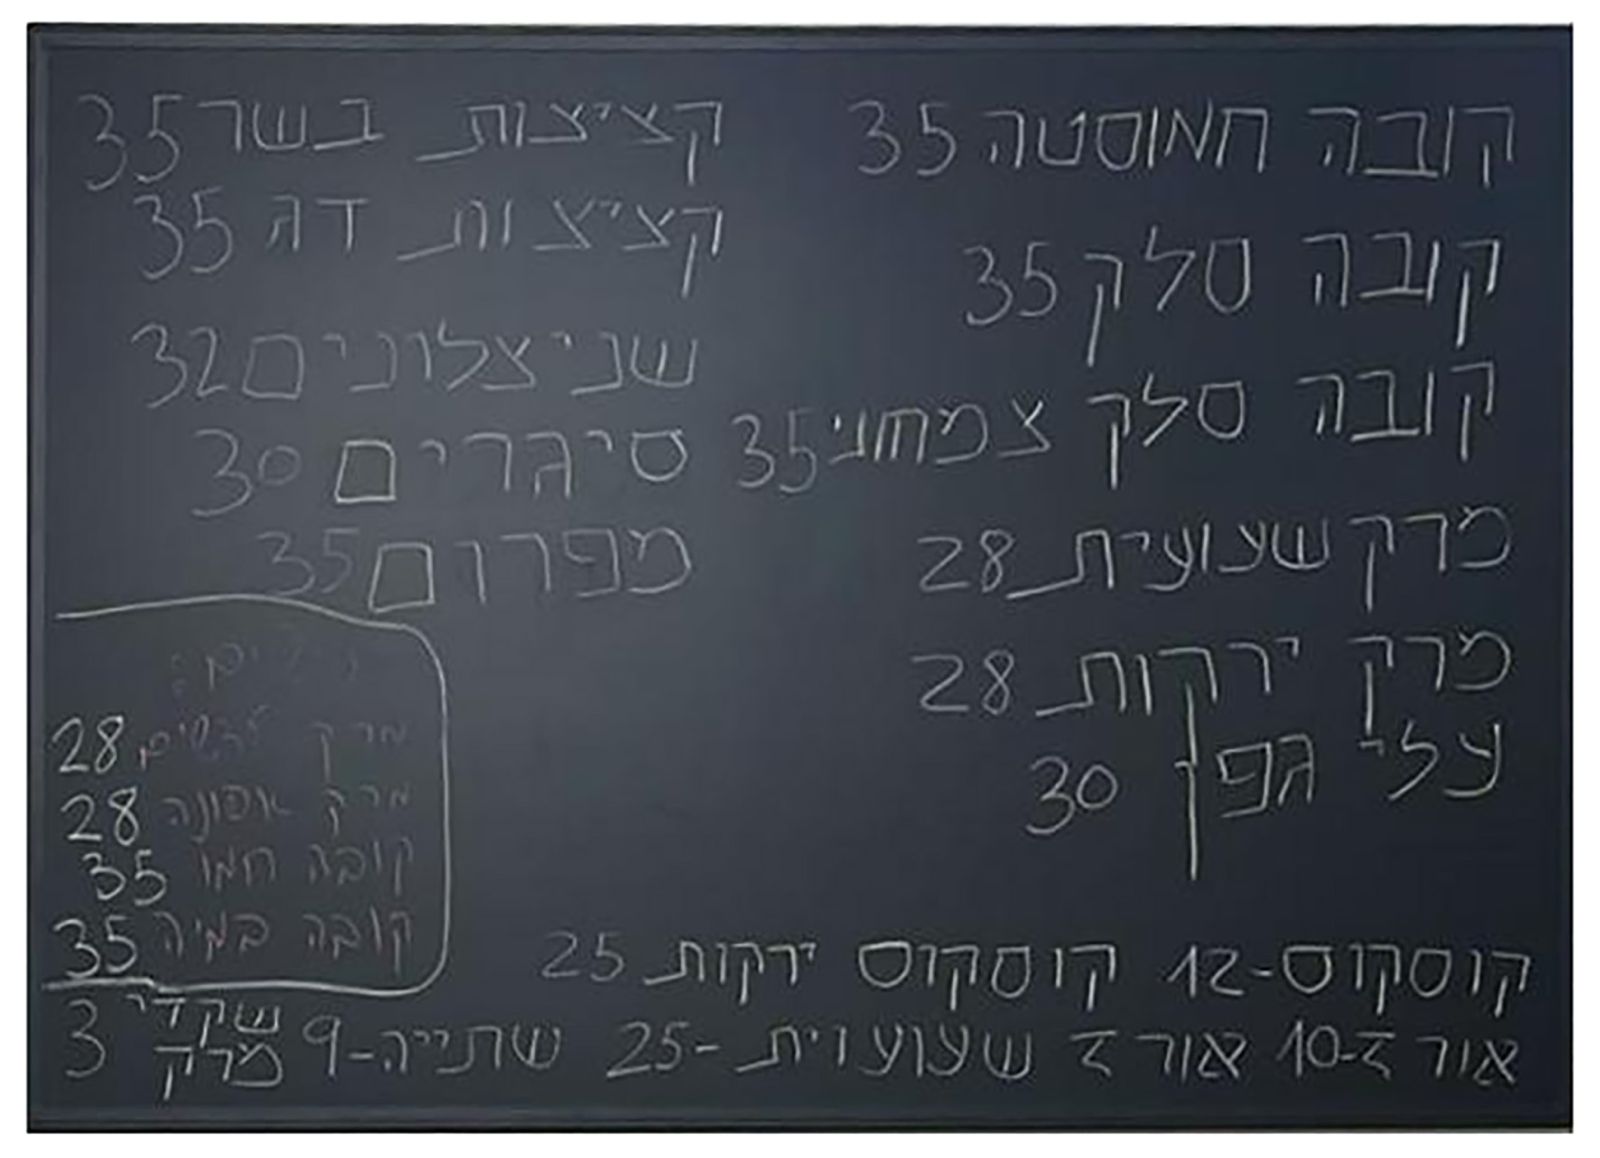 קובה חמוסטה 35
קובה סלק 35
קובה סלק צמחוני 35
מרק שעועית 28
מרק ירקות 28
עלי גפן 30
קציצות בשר 35
קציצות דג 35
שניצלונים 32
סיגרים 30
מפרום 35
מרק עדשים 28
מרק אפונה 28
קובה חמו 35
קובה במיה 35
קוסקוס-12 קוסקוס ירקות 25
אורז-10 אורז שעועוית -25 שתייה-9 שקדי מרק 3